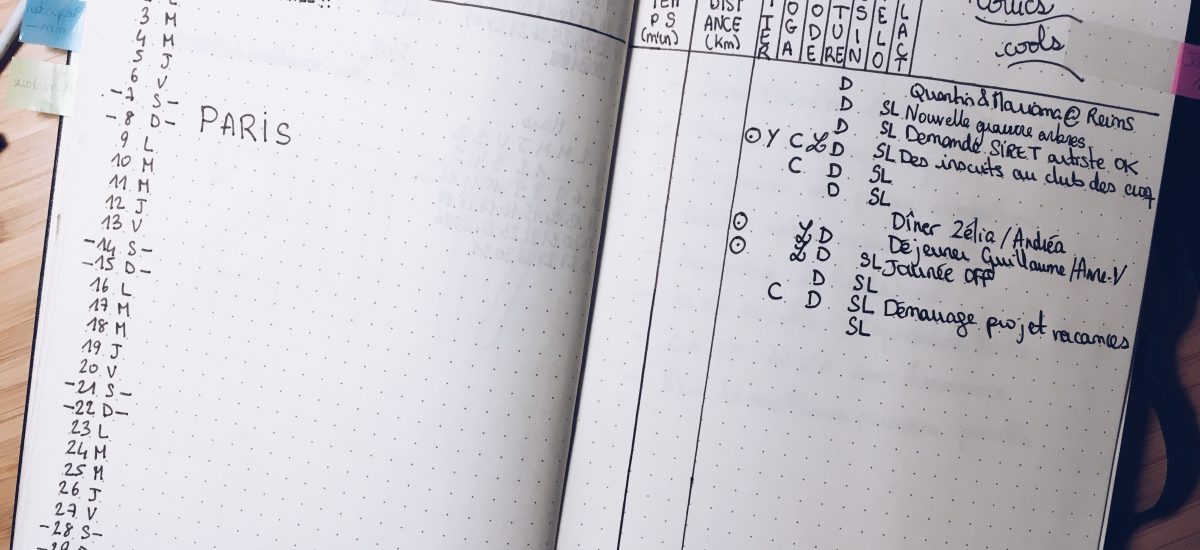 3 M
4 M
5 J
6 V
-7 S-
-8 D- PARIS
9 L
10 M
11 M
12 J
13 V
-14 S-
-15 D-
16 L
17 M
18 M
19 J
20 V
-21 S-
-22 D-
23 L
24 M
25 M
26 J
27 V
-28 S-
TEM DIST
PS ANCE
(min) (km)
cools
D Quentin & Mariama @ Reims
D SL Nouvelle grande arbres
D SL Demande SIRET artiste OK
Y C L D SL Des inscrits au club des cinq
C D SL
D SL
L D Dîner Zélia/Andréa
L D Déjeuner Guillaume/Anne-V
D SL Journée off
D SL
C D SL Démarrage projet vacances
SL